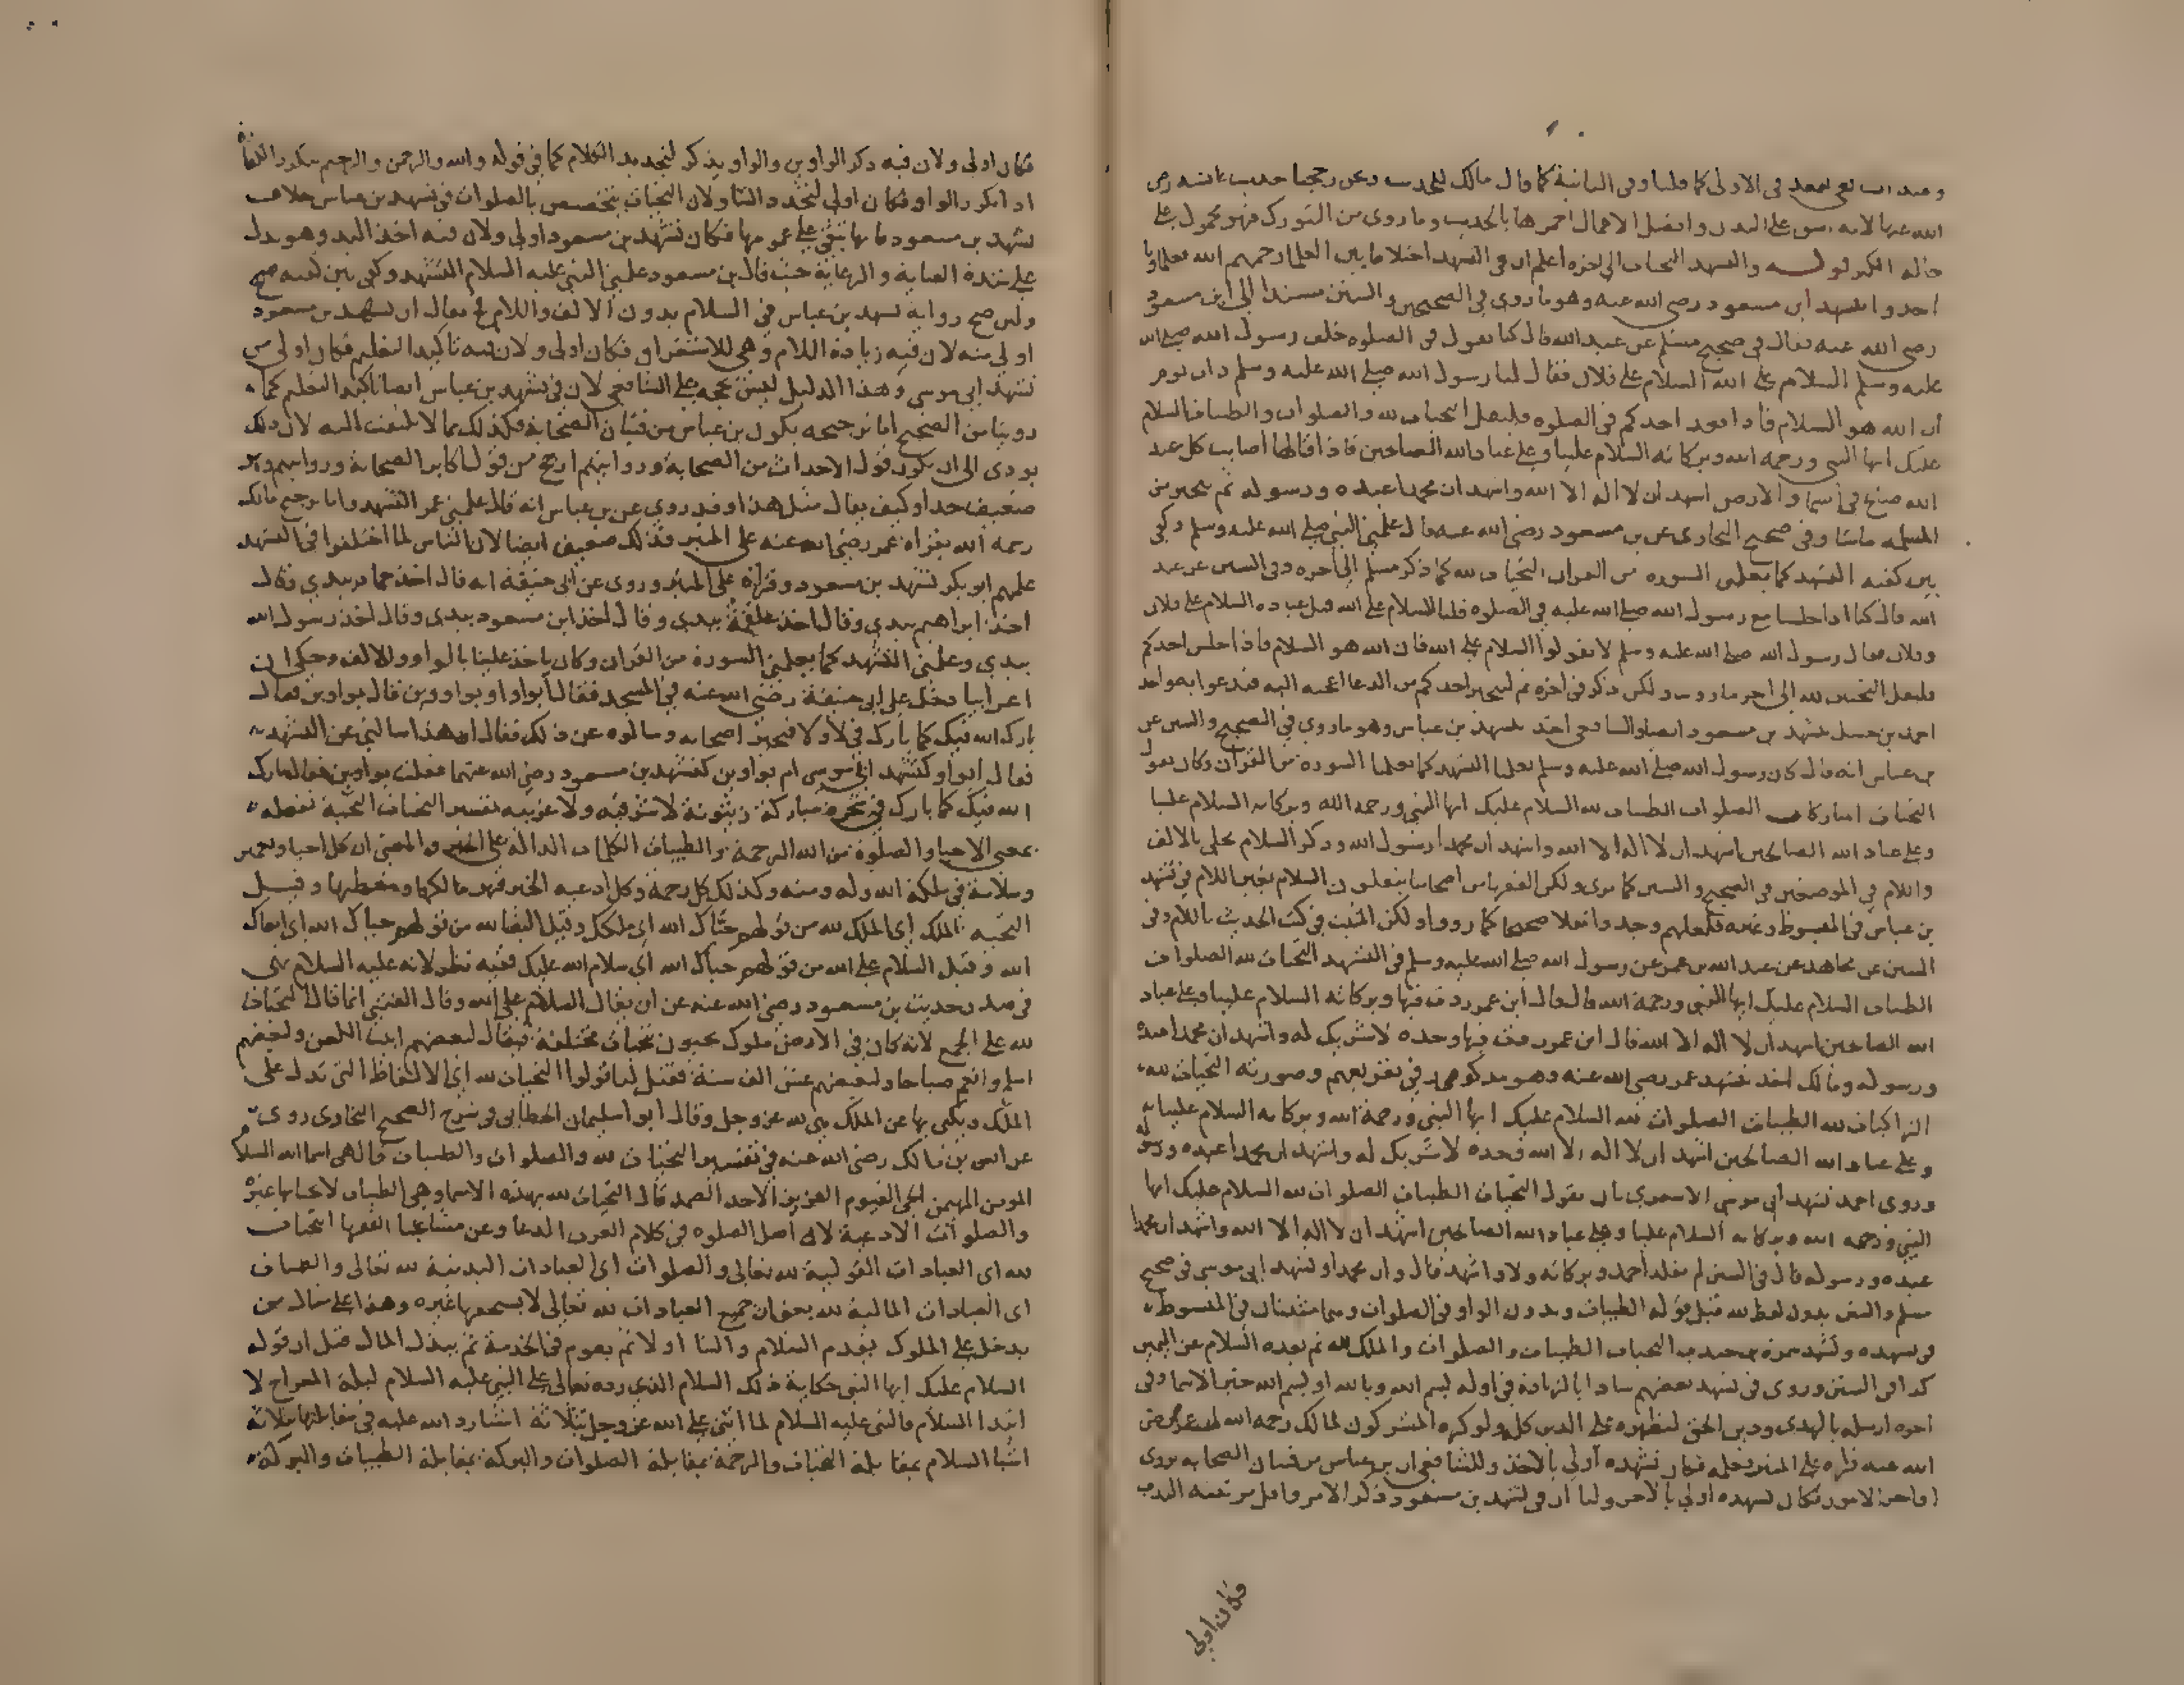 وعند الشافعي يقعد في الاولى كما قلنا وفي الثانية كما قال مالك للحديث ونحن رجحنا حديث عائشة رضي
الله عنها لانه اشق على البدن وافضل الاعمال احمزها بالحديث وما روى من التورك فهو محمول على
حالة الكبر قوله والتشهد التحيات الى اخره اعلم ان في التشهد اختلافا بين العلما رحمهم الله فعلماؤنا
اخذوا بتشهد ابن مسعود رضي الله عنه وهو ما روى في الصحيحين والسنن مسندا الى ابن مسعود
رضي الله عنه فقال في صحيح مسلم عن عبد الله قال كنا نقول في الصلوة خلف رسول الله صلى الله
عليه وسلم السلام على الله السلام على فلان فقال لنا رسول الله صلى الله عليه وسلم ذات يوم
ان الله هو السلام فاذا قعد احدكم في الصلوة فليقل التحيات لله والصلوات والطيبات السلام
عليك ايها النبي ورحمة الله وبركاته السلام علينا وعلى عباد الله الصالحين فاذا قالها اصابت كل عبد
الله صالح في السما والارض اشهد ان لا اله الا الله واشهد ان محمدا عبده ورسوله ثم يتخير من
المسلة ماشا وفي صحيح البخاري عن بن مسعود رضي الله عنه قال علمني النبي صلى الله عليه وسلم وكفي
بين كفيه التشهد كما يعلمني السورة من القران التحيات لله كما ذكر مسلم الى اخره وفي السنن عن عبد
الله قال كنا اذا جلسنا مع رسول الله صلى الله عليه في الصلوة قلنا السلام على الله قبل عباده السلام على فلان
وفلان فقال رسول الله صلى الله عليه وسلم لا تقولوا السلام على الله فان الله هو السلام فاذا جلس احدكم
فليقل التحيات لله الى اخر ما روينا ولكن ذكر في اخره ثم ليتخير احدكم من الدعا اعجبه اليه فيدعوا به واخذ
احمد بن حنبل بتشهد بن مسعود ايضا والشافعي اخذ بتشهد بن عباس وهو ما روي في الصحيح والسنن عن
بن عباس انه قال كان رسول الله صلى الله عليه وسلم يعلمنا التشهد كما يعلمنا السورة من القران وكان يقول
التحيات المباركات الصلوات الطيبات لله السلام عليك ايها النبي ورحمة الله وبركاته السلام علينا
وعلى عباد الله الصالحين اشهد ان لا اله الا الله واشهد ان محمدا رسول الله وذكر السلام محلى بالالف
واللام في الموضعين في الصحيح والسنن كما ترى ولكن الفقها من اصحابنا ينقلون السلام بغير اللام في تشهد
بن عباس في المبسوط وغيره فلعلهم وجدوا نقلا صحيحا كما رووا ولكن المثبت في كتب الحديث باللام وفي
السنن عن مجاهد عن عبد الله بن عمر عن رسول الله صلى الله عليه وسلم في التشهد التحيات لله الصلوات
الطيبات السلام عليك ايها النبي ورحمة الله قال قال ابن عمر زدت فيها وبركاته السلام علينا وعلى عباد
الله الصالحين اشهد ان لا اله الا الله قال ابن عمر زدت فيها وحده لا شريك له واشهد ان محمدا عبده
ورسوله ومالك اخذ بتشهد عمر رضي الله عنه وهو مذكور في تفريعهم وصورته التحيات لله
الزاكيات لله الطيبات الصلوات لله السلام عليك ايها النبي ورحمة الله وبركاته السلام علينا
وعلى عباد الله الصالحين اشهد ان لا اله الا الله وحده لا شريك له واشهد ان محمدا عبده ورسوله
وروى احمد تشهد ابي موسى الاشعري بان يقول التحيات الطيبات الصلوات لله السلام عليك ايها
النبي ورحمة الله وبركاته السلام علينا وعلى عباد الله الصالحين اشهد ان لا اله الا الله واشهد ان محمدا
عبده ورسوله قال في السنن لم يقل احمد وبركاته ولا واشهد قال وان محمدا وتشهد ابي موسى في صحيح
مسلم والسنن بدون لفظ لله قبل قوله الطيبات وبدون الواو في الصلوات وهما مثبتان في المبسوط
في تشهده وتشهد سمرة بن جندب التحيات الطيبات والصلوات والملك لله ثم بعده السلام عن اليمين
كذا في السنن وروى في تشهد بعضهم شاذا بالزيادة في اوله بسم الله وبالله او بسم الله خير الاسما وفي
اخره ارسله بالهدى ودين الحق ليظهره على الدين كله ولو كره المشركون لمالك رحمه الله ان عمر رضي
الله عنه قراه على المنبر فعلمه فكان تشهده اولى بالاخذ وللشافعي ان بن عباس من فتيان الصحابة يروى
اواخر الامور فكان تشهده اولى بالاخذ ولنا ان في تشهد بن مسعود ذكر الامر واقل مرتبته الندب
فكان اولى
فكان اولى ولان فيه ذكر الواوين والواو يذكر لتجديد الكلام كما في قوله والله والرحمن والرحيم يتكرر القسم
اذا تكرر الواو فكان اولى لتجدد الثنا ولان التحيات يتخصص بالصلوات في تشهد بن عباس خلاف
تشهد بن مسعود فانها يبقى على عمومها فكان تشهد بن مسعود اولى ولان فيه اخذ اليد وهو يدل
على شدة العناية والرعاية حيث قال بن مسعود علمني النبي عليه السلام التشهد وكفي بين كفيه صح
ولئن صح رواية تشهد بن عباس في السلام بدون الالف واللام فح يقال ان تشهد بن مسعود
اولى منه لان فيه زيادة اللام وهي للاستغراق فكان اولى ولان فيه تاكيد التعليم فكان اولى من
تشهد ابي موسى وهذا الدليل ليس بحجة على الشافعي لان في تشهد بن عباس ايضا تاكيد التعليم كما
روينا من الصحيح اما ترجيحه بكون بن عباس من فتيان الصحابة فكذلك مما لا يلتفت اليه لان ذلك
يودى الى ان يكون قول الاحداث من الصحابة وروايتهم ارجح من قول اكابر الصحابة وروايتهم وهو
ضعيف جدا وكيف يقال مثل هذا وقد روي عن بن عباس انه قال علمني عمر التشهد واما ترجيح مالك
رحمه الله بقراة عمر رضي الله عنه على المنبر فذلك ضعيف ايضا لان الناس لما اختلفوا في التشهد
علمهم ابو بكر تشهد بن مسعود وقراه على المنبر وروى عن ابي حنيفة انه قال اخذ حماد بيدي وقال
اخذ ابراهيم بيدي وقال اخذ علقمة بيدي وقال اخذ ابن مسعود بيدي وقال اخذ رسول الله
بيدي وعلمني التشهد كما يعلمني السورة من القران وكان ياخذ علينا بالواو والالف وحكى ان
اعرابيا دخل على ابي حنيفة رضي الله عنه في المسجد فقال ابواو او بواوين قال بواوين فقال
بارك الله فيك كما بارك في لا ولا فتحير اصحابه وسالوه عن ذلك فقال ان هذا سالني عن التشهد
فقال ابواو كتشهد ابي موسى ام بواوين كتشهد بن مسعود رضي الله عنهما فقلت بواوين فقال بارك
الله فيك كما بارك في شجرة مباركة زيتونة لا شرقيه ولا غربيه تفسير التحيات التحية تفعله
بمعنى الاحيا والصلوة من الله الرحمة والطيبات الكلمات الدالة على الخير والمعنى ان كل احيا وتعمير
وسلامة في ملكة الله وله ومنه وكذلك كل رحمة وكل ادعيه الخير فهو مالكها ومعطيها وقيل
التحيه الملك اي الملك لله من قولهم حياك الله اي ملكك وقيل البقا لله من قولهم حياك الله اي ابقاك
الله وقيل السلام على الله من قولهم حياك الله اي سلام الله عليك ففيه نظر لانه عليه السلام نهى
في صدر حديث بن مسعود رضي الله عنه عن ان يقال السلام على الله وقال القتبي انما قال التحيات
لله على الجمع لانه كان في الارض ملوك يحيون بتحيات مختلفة فيقال لبعضهم ابيت اللعن ولبعضهم
اسلم وانعم صباحا ولبعضهم عش الف سنة فقيل لنا قولوا التحيات لله اي الالفاظ التي تدل على
الملك ويكنى بها عن الملك هي لله عز وجل وقال ابو اسليمان الخطابي في شرح الصحيح البخاري روى
عن انس بن مالك رضي الله عنه في تفسير التحيات لله والصلوات والطيبات قال هي اسما الله السلام
المومن المهيمن الحي القيوم العزيز الاحد الصمد قال التحيات لله بهذه الاسما وهي الطيبات لا يحيا بها غيره
والصلوات الادعية لان اصل الصلوة في كلام العرب الدعا وعن مشايخنا الفقها التحيات
لله اى العبادات القولية لله تعالى والصلوات اى العبادات البدنية لله تعالى والطيبات
اى العبادات المالية لله يعني ان جميع العبادات لله تعالى لا يستحقها غيره وهذا على مثال من
يدخل على الملوك يقدم السلام والثنا اولا ثم يقوم في الخدمة ثم يبذل المال قيل ان قوله
السلام عليك ايها النبي حكاية ذلك السلام الذي رده تعالى على النبي عليه السلام ليلة المعراج لا
ابتدا السلام فالنبي عليه السلام لما اثنى على الله عز وجل بثلاثة اشيا رد الله عليه في مقابلتها بثلاثة
اشيا السلام بمقابلة التحيات والرحمة بمقابلة الصلوات والبركة بمقابلة الطيبات والبركة